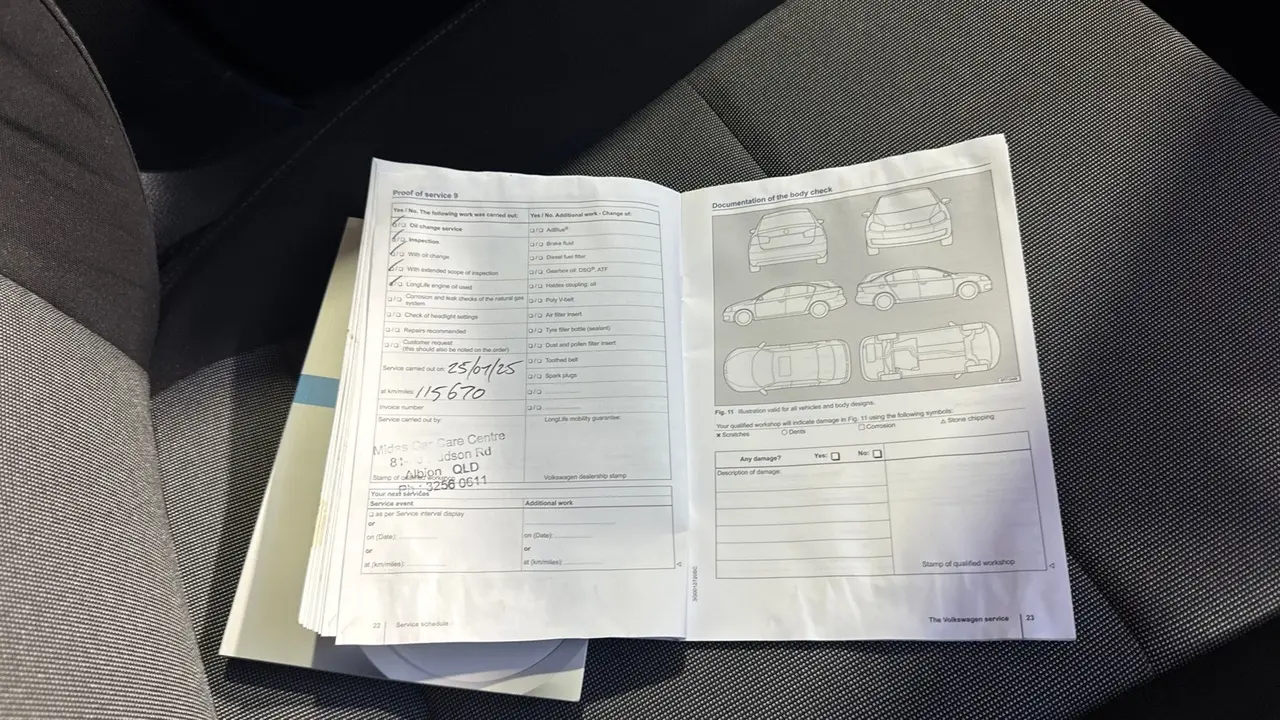 Proof of service 9
Yes / No. The following work was carried out:
Oil change service
Inspection
With oil change
With extended scope of inspection
LongLife engine oil used
Corrosion and leak checks of the natural gas
system
Check of headlight settings
Repairs recommended
Customer request
(this should also be noted on the order)
Service carried out on: 25/07/25
at km/miles: 115670
Invoice number
Service carried out by:
Midas Car Care Centre
Albion QLD
Ph: 3256 0611
Stamp of
Your next services
Service event
as per Service interval display
or
on (Date):
or
at (km/miles):
Yes / No. Additional work - Change of:
AdBlue®
Brake fluid
Diesel fuel filter
Gearbox oil: DSG®, ATF
Haldex coupling: oil
Poly V-belt
Air filter insert
Tyre filler bottle (sealant)
Dust and pollen filter insert
Toothed belt
Spark plugs
LongLife mobility guarantee:
Volkswagen dealership stamp
Additional work
on (Date):
or
at (km/miles):
22 Service schedule
Documentation of the body check
Fig. 11 Illustration valid for all vehicles and body designs.
Your qualified workshop will indicate damage in Fig. 11 using the following symbols:
Scratches Dents Corrosion Stone chipping
Any damage? Yes: No:
Description of damage:
Stamp of qualified workshop
The Volkswagen service 23